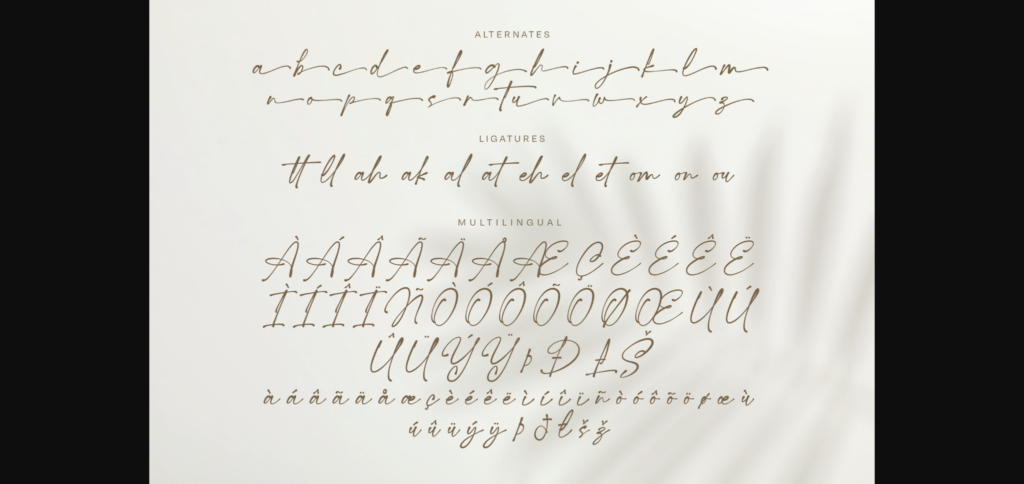 ALTERNATES
a b c d e f g h i j k l m
n o p q s r t u v w x y z
LIGATURES
tt ll ah ak al at eh el et om on ou
MULTILINGUAL
À Á Â Ã Ä Å Æ Ç È É Ê Ë
Ì Í Î Ï Ñ Ò Ó Ô Õ Ö Ø Œ Ù Ú
Û Ü Ý Ÿ þ Ð Ł Š
à á â ã ä å æ ç è é ê ë ì í î ï ñ ò ó ô õ ö ø œ ù
ú û ü ý ÿ þ ð ł š ž